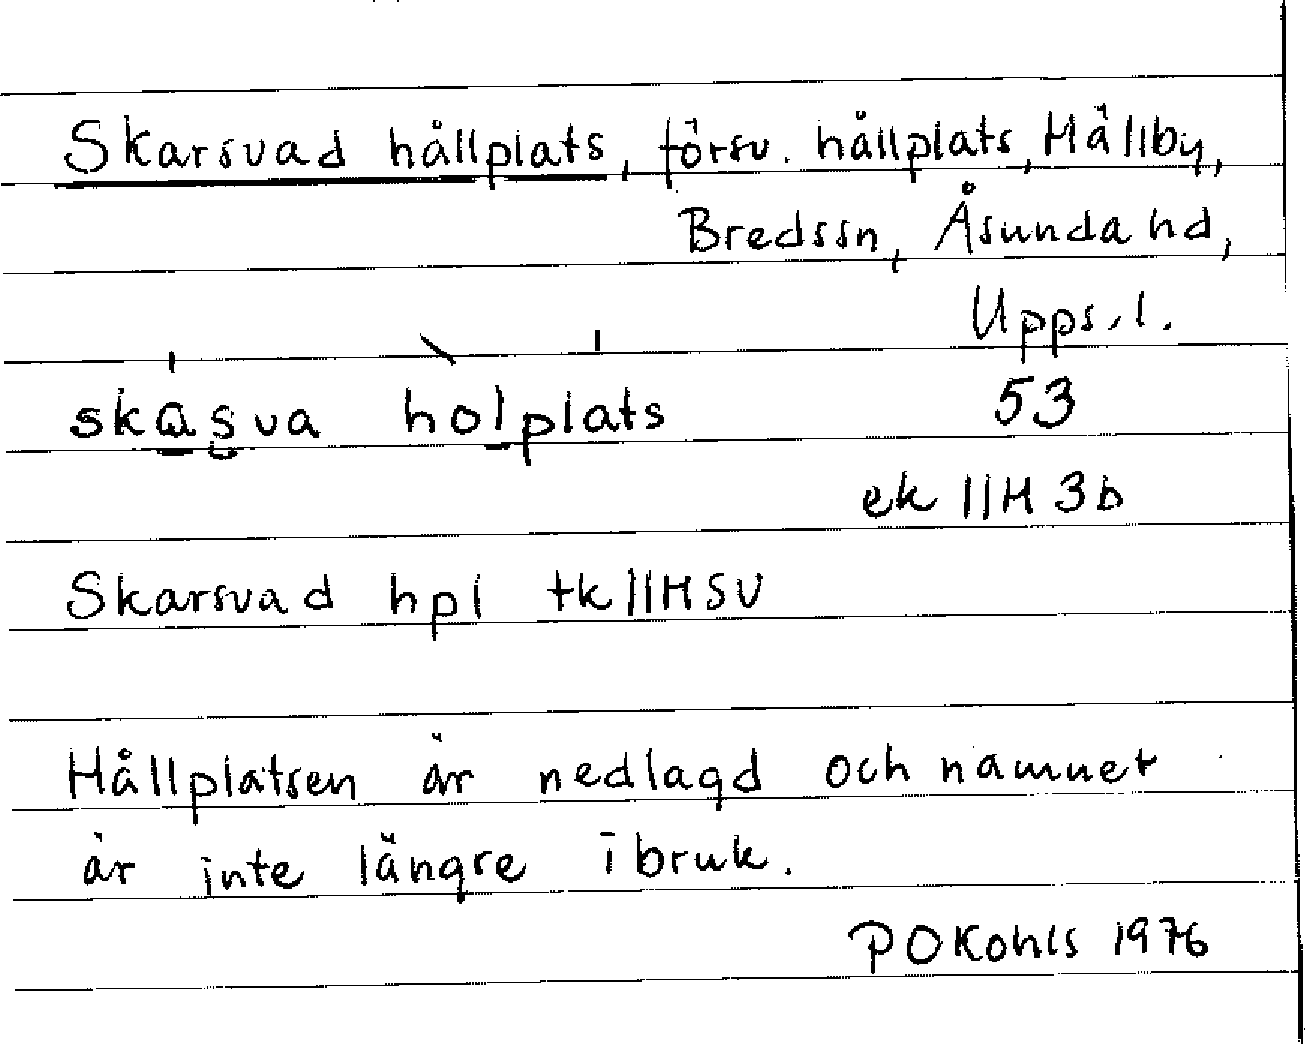 Skarsvad hållplats, försv. hållplats, Hällby,
Bredssn, Åsunda hd,
Upps. l.
skasva holplats 53
ek 11H 3b
Skarsvad hpl tk 11HSV
Hållplatsen är nedlagd och namnet
är inte längre i bruk.
P O Kohls 1976